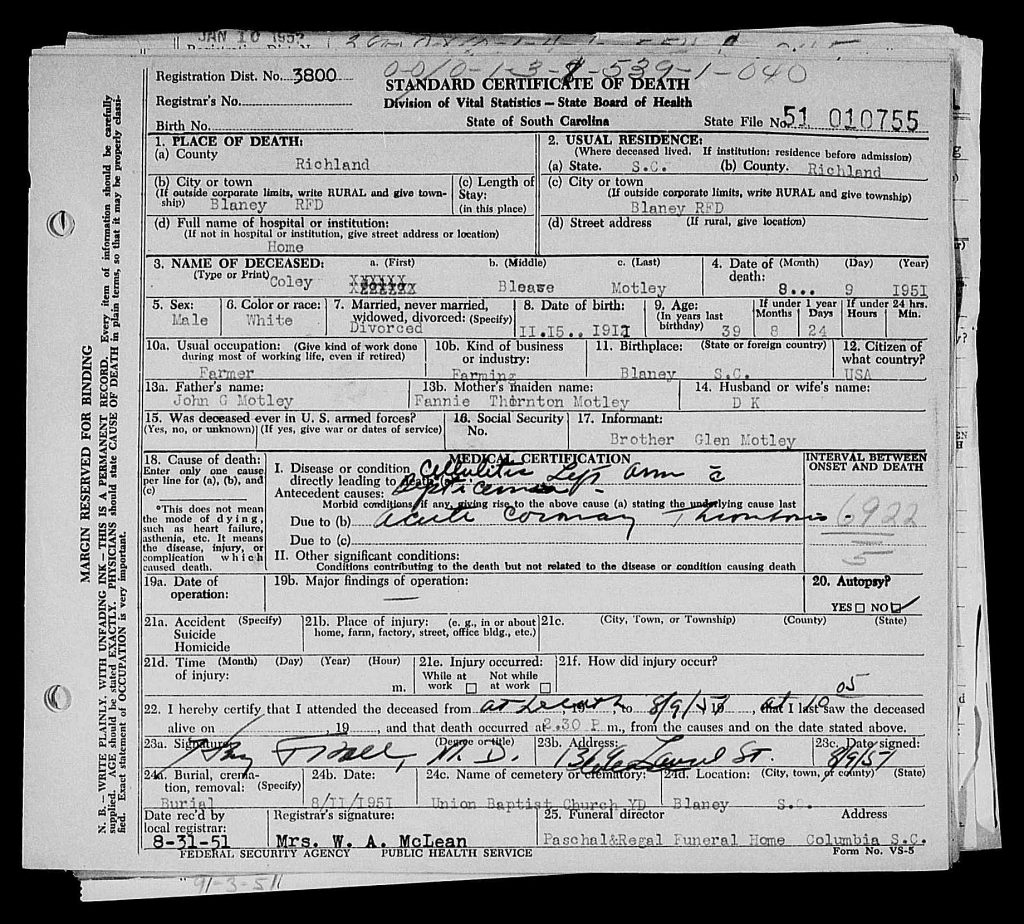 JAN 10 1952
Registration Dist. No. 3800
0-010-1-3-8-539-1-040
STANDARD CERTIFICATE OF DEATH
Registrar's No.
Division of Vital Statistics — State Board of Health
Birth No.
State of South Carolina
State File No. 51 010755
1. PLACE OF DEATH:
(a) County
Richland
2. USUAL RESIDENCE:
(Where deceased lived. If institution: residence before admission)
(a) State. S.C. (b) County. Richland
(b) City or town
(If outside corporate limits, write RURAL and give township)
Blaney RFD
(c) Length of Stay:
(in this place)
(c) City or town
(If outside corporate limits, write RURAL and give township)
Blaney RFD
(d) Full name of hospital or institution:
(If not in hospital or institution, give street address or location)
Home
(d) Street address (If rural, give location)
3. NAME OF DECEASED: a. (First) b. (Middle) c. (Last)
(Type or Print) Coley Blease Motley
4. Date of (Month) (Day) (Year)
death:
8... 9 1951
5. Sex:
Male
6. Color or race:
White
7. Married, never married,
widowed, divorced: (Specify)
Divorced
8. Date of birth:
11.15..
9. Age:
(In years last
birthday) 39
If under 1 year
Months Days
8 24
If under 24 hrs.
Hours Min.
10a. Usual occupation: (Give kind of work done
during most of working life, even if retired)
Farmer
10b. Kind of business
or industry:
Farming
11. Birthplace: (State or foreign country)
Blaney S.C.
12. Citizen of
what country?
USA
13a. Father's name:
John G Motley
13b. Mother's maiden name:
Fannie Thornton Motley
14. Husband or wife's name:
D K
15. Was deceased ever in U. S. armed forces?
(Yes, no, or unknown) (If yes, give war or dates of service)
16. Social Security
No.
17. Informant:
Brother Glen Motley
18. Cause of death:
Enter only one cause
per line for (a), (b), and
(c)
*This does not mean
the mode of dying,
such as heart failure,
asthenia, etc. It means
the disease, injury, or
complication which
caused death.
MEDICAL CERTIFICATION
INTERVAL BETWEEN
ONSET AND DEATH
I. Disease or condition Cellulitis Left arm c̄
directly leading to death
Antecedent causes: Septicemia -
Morbid conditions, if any, giving rise to the above cause (a) stating the underlying cause last
Due to (b) acute coronary Thrombosis
6922
5
Due to (c)
II. Other significant conditions:
Conditions contributing to the death but not related to the disease or condition causing death
19a. Date of
operation:
19b. Major findings of operation:
—
20. Autopsy?
YES ☐ NO ☑
21a. Accident (Specify)
Suicide
Homicide
21b. Place of injury: (e. g., in or about
home, farm, factory, street, office bldg., etc.)
21c. (City, Town, or Township) (County) (State)
21d. Time (Month) (Day) (Year) (Hour)
of injury: m.
21e. Injury occurred:
While at work ☐ Not while at work ☐
21f. How did injury occur?
22. I hereby certify that I attended the deceased from at death, to 8/9/51, that I last saw the deceased
alive on , 19 , and that death occurred at 2.30 P m., from the causes and on the date stated above.
23a. Signature (Degree or title) M. D.
23b. Address:
1366 Laurel St.
23c. Date signed:
8/9/51
24a. Burial, cremation, removal: (Specify)
Burial
24b. Date:
8/11/1951
24c. Name of cemetery or crematory:
Union Baptist Church YD
24d. Location: (City, town, or county) (State)
Blaney S.C.
Date rec'd by
local registrar:
8-31-51
Registrar's signature:
Mrs. W. A. McLean
25. Funeral director Address
Paschal&Regal Funeral Home Columbia S.C.
FEDERAL SECURITY AGENCY PUBLIC HEALTH SERVICE
Form No. VS-5
91-3-511
MARGIN RESERVED FOR BINDING
N. B. — WRITE PLAINLY, WITH UNFADING INK — THIS IS A PERMANENT RECORD. Every item of information should be carefully
supplied. AGE should be stated EXACTLY. PHYSICIANS should state CAUSE OF DEATH in plain terms, so that it may be properly classi-
fied. Exact statement of OCCUPATION is very important.